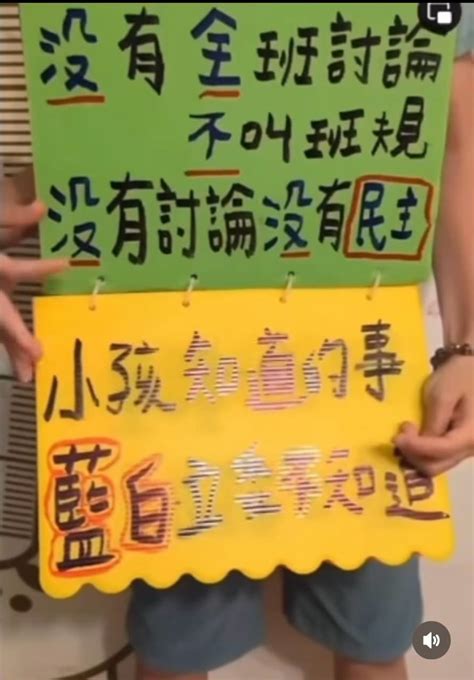 没有全班討論
不叫班規
没有討論没有民主
小孩知道的事
藍白立委不知道